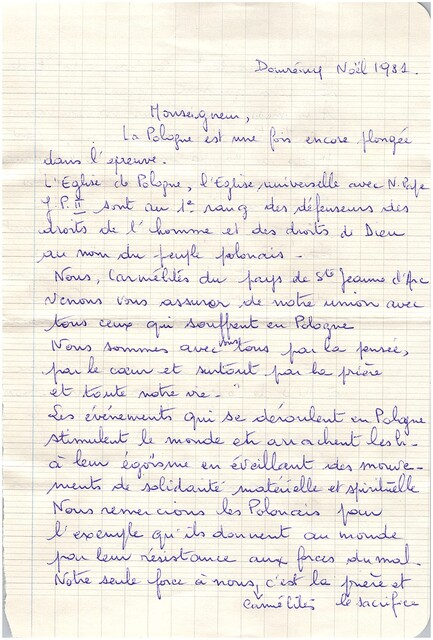 Domrémy Noël 1981.
Monseigneur,
La Pologne est une fois encore plongée
dans l'épreuve.
L'Eglise de Pologne, l'Eglise universelle avec N. Pape
J.P. II sont au 1er rang des défenseurs des
droits de l'homme et des droits de Dieu
au nom du peuple polonais.
Nous, Carmélites du pays de Ste Jeanne d'Arc
venons vous assurer de notre union avec
tous ceux qui souffrent en Pologne
Nous sommes avec vous tous par la pensée,
par le cœur et surtout par la prière
et toute notre vie."
Les événements qui se déroulent en Pologne
stimulent le monde et arrachent
à leur égoïsme en éveillant des mouve-
ments de solidarité matérielle et spirituelle
Nous remercions les Polonais pour
l'exemple qu'ils donnent au monde
par leur résistance aux forces du mal.
Notre seule force à nous, c'est la prière et
carmélites le sacrifice